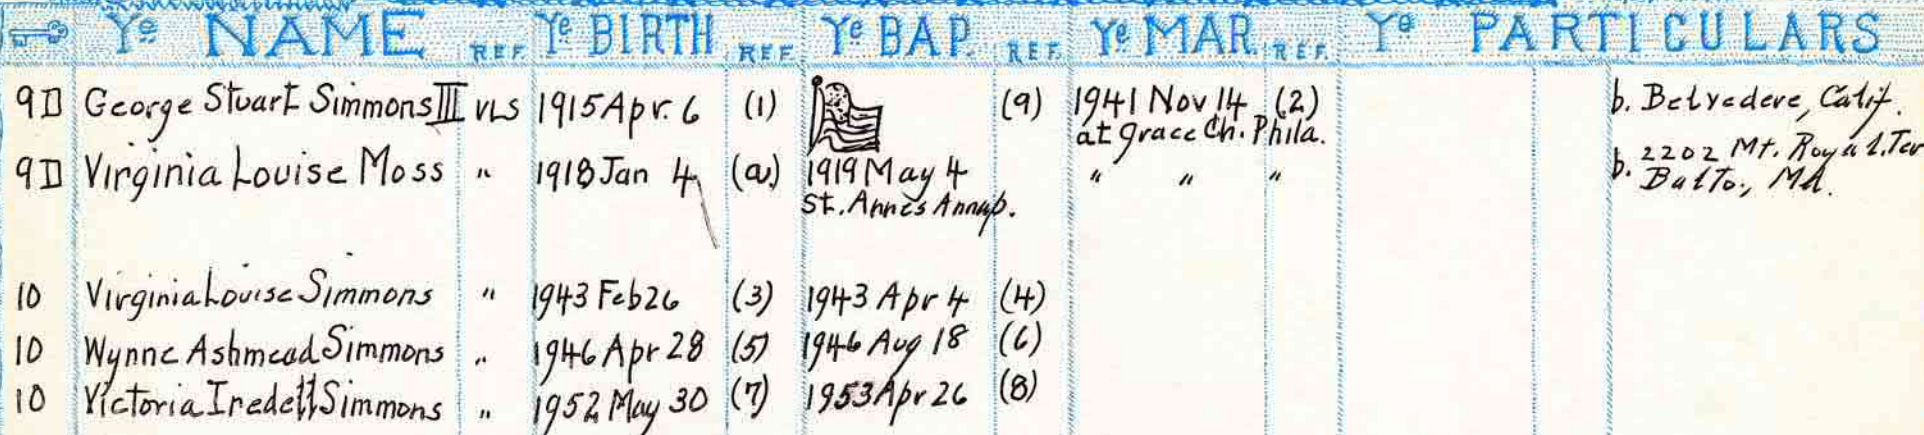 Ye NAME REF. Ye BIRTH REF. Ye BAP. REF. Ye MAR. REF. Ye PARTICULARS
9D George Stuart Simmons III VLS 1915 Apr. 6 (1) (9) 1941 Nov 14 (2) b. Belvedere, Calif.
at Grace Ch. Phila.
9D Virginia Louise Moss " 1918 Jan 4 (a) 1919 May 4 " " " b. 2202 Mt. Royal Ter
St. Anne's Annap. Balto., Md.
10 Virginia Louise Simmons " 1943 Feb 26 (3) 1943 Apr 4 (4)
10 Wynne Ashmead Simmons " 1946 Apr 28 (5) 1946 Aug 18 (6)
10 Victoria Iredell Simmons " 1952 May 30 (7) 1953 Apr 26 (8)